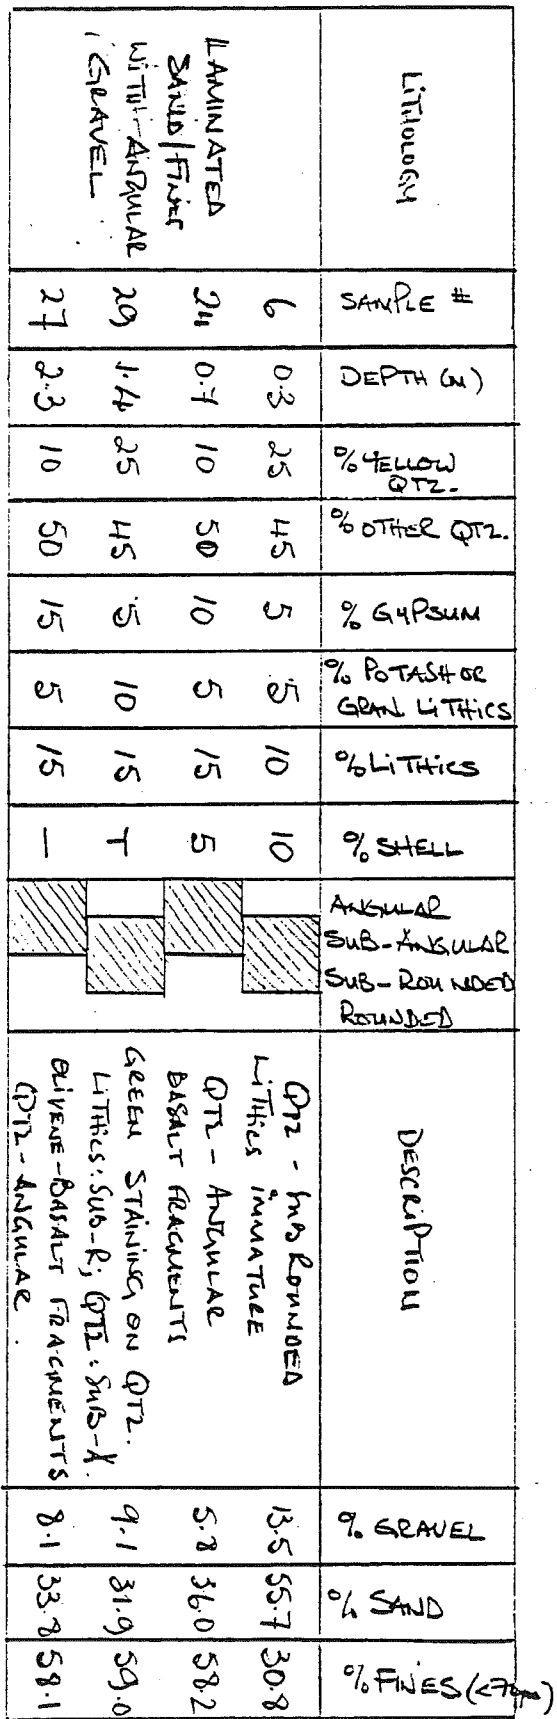 LITHOLOGY
SAMPLE #
DEPTH (M)
% YELLOW QTZ.
% OTHER QTZ.
% GYPSUM
% POTASH OR GRAN. LITHICS
% LITHICS
% SHELL
ANGULAR
SUB-ANGULAR
SUB-ROUNDED
ROUNDED
DESCRIPTION
% GRAVEL
% SAND
% FINES
LAMINATED
SAND/FINES
WITH ANGULAR
GRAVEL
6 0.3 25 45 5 5 10 10
QTZ - SUB ROUNDED
LITHICS IMMATURE
13.5 55.7 30.8
24 0.7 10 50 10 5 15 5
QTZ - ANGULAR
BASALT FRAGMENTS
5.8 36.0 58.2
29 1.4 25 45 5 10 15 T
GREEN STAINING ON QTZ.
LITHICS: SUB-R; QTZ: SUB-A.
9.1 31.9 59.0
27 2.3 10 50 15 5 15 —
OLIVENE-BASALT FRAGMENTS
QTZ - ANGULAR.
8.1 33.8 58.1